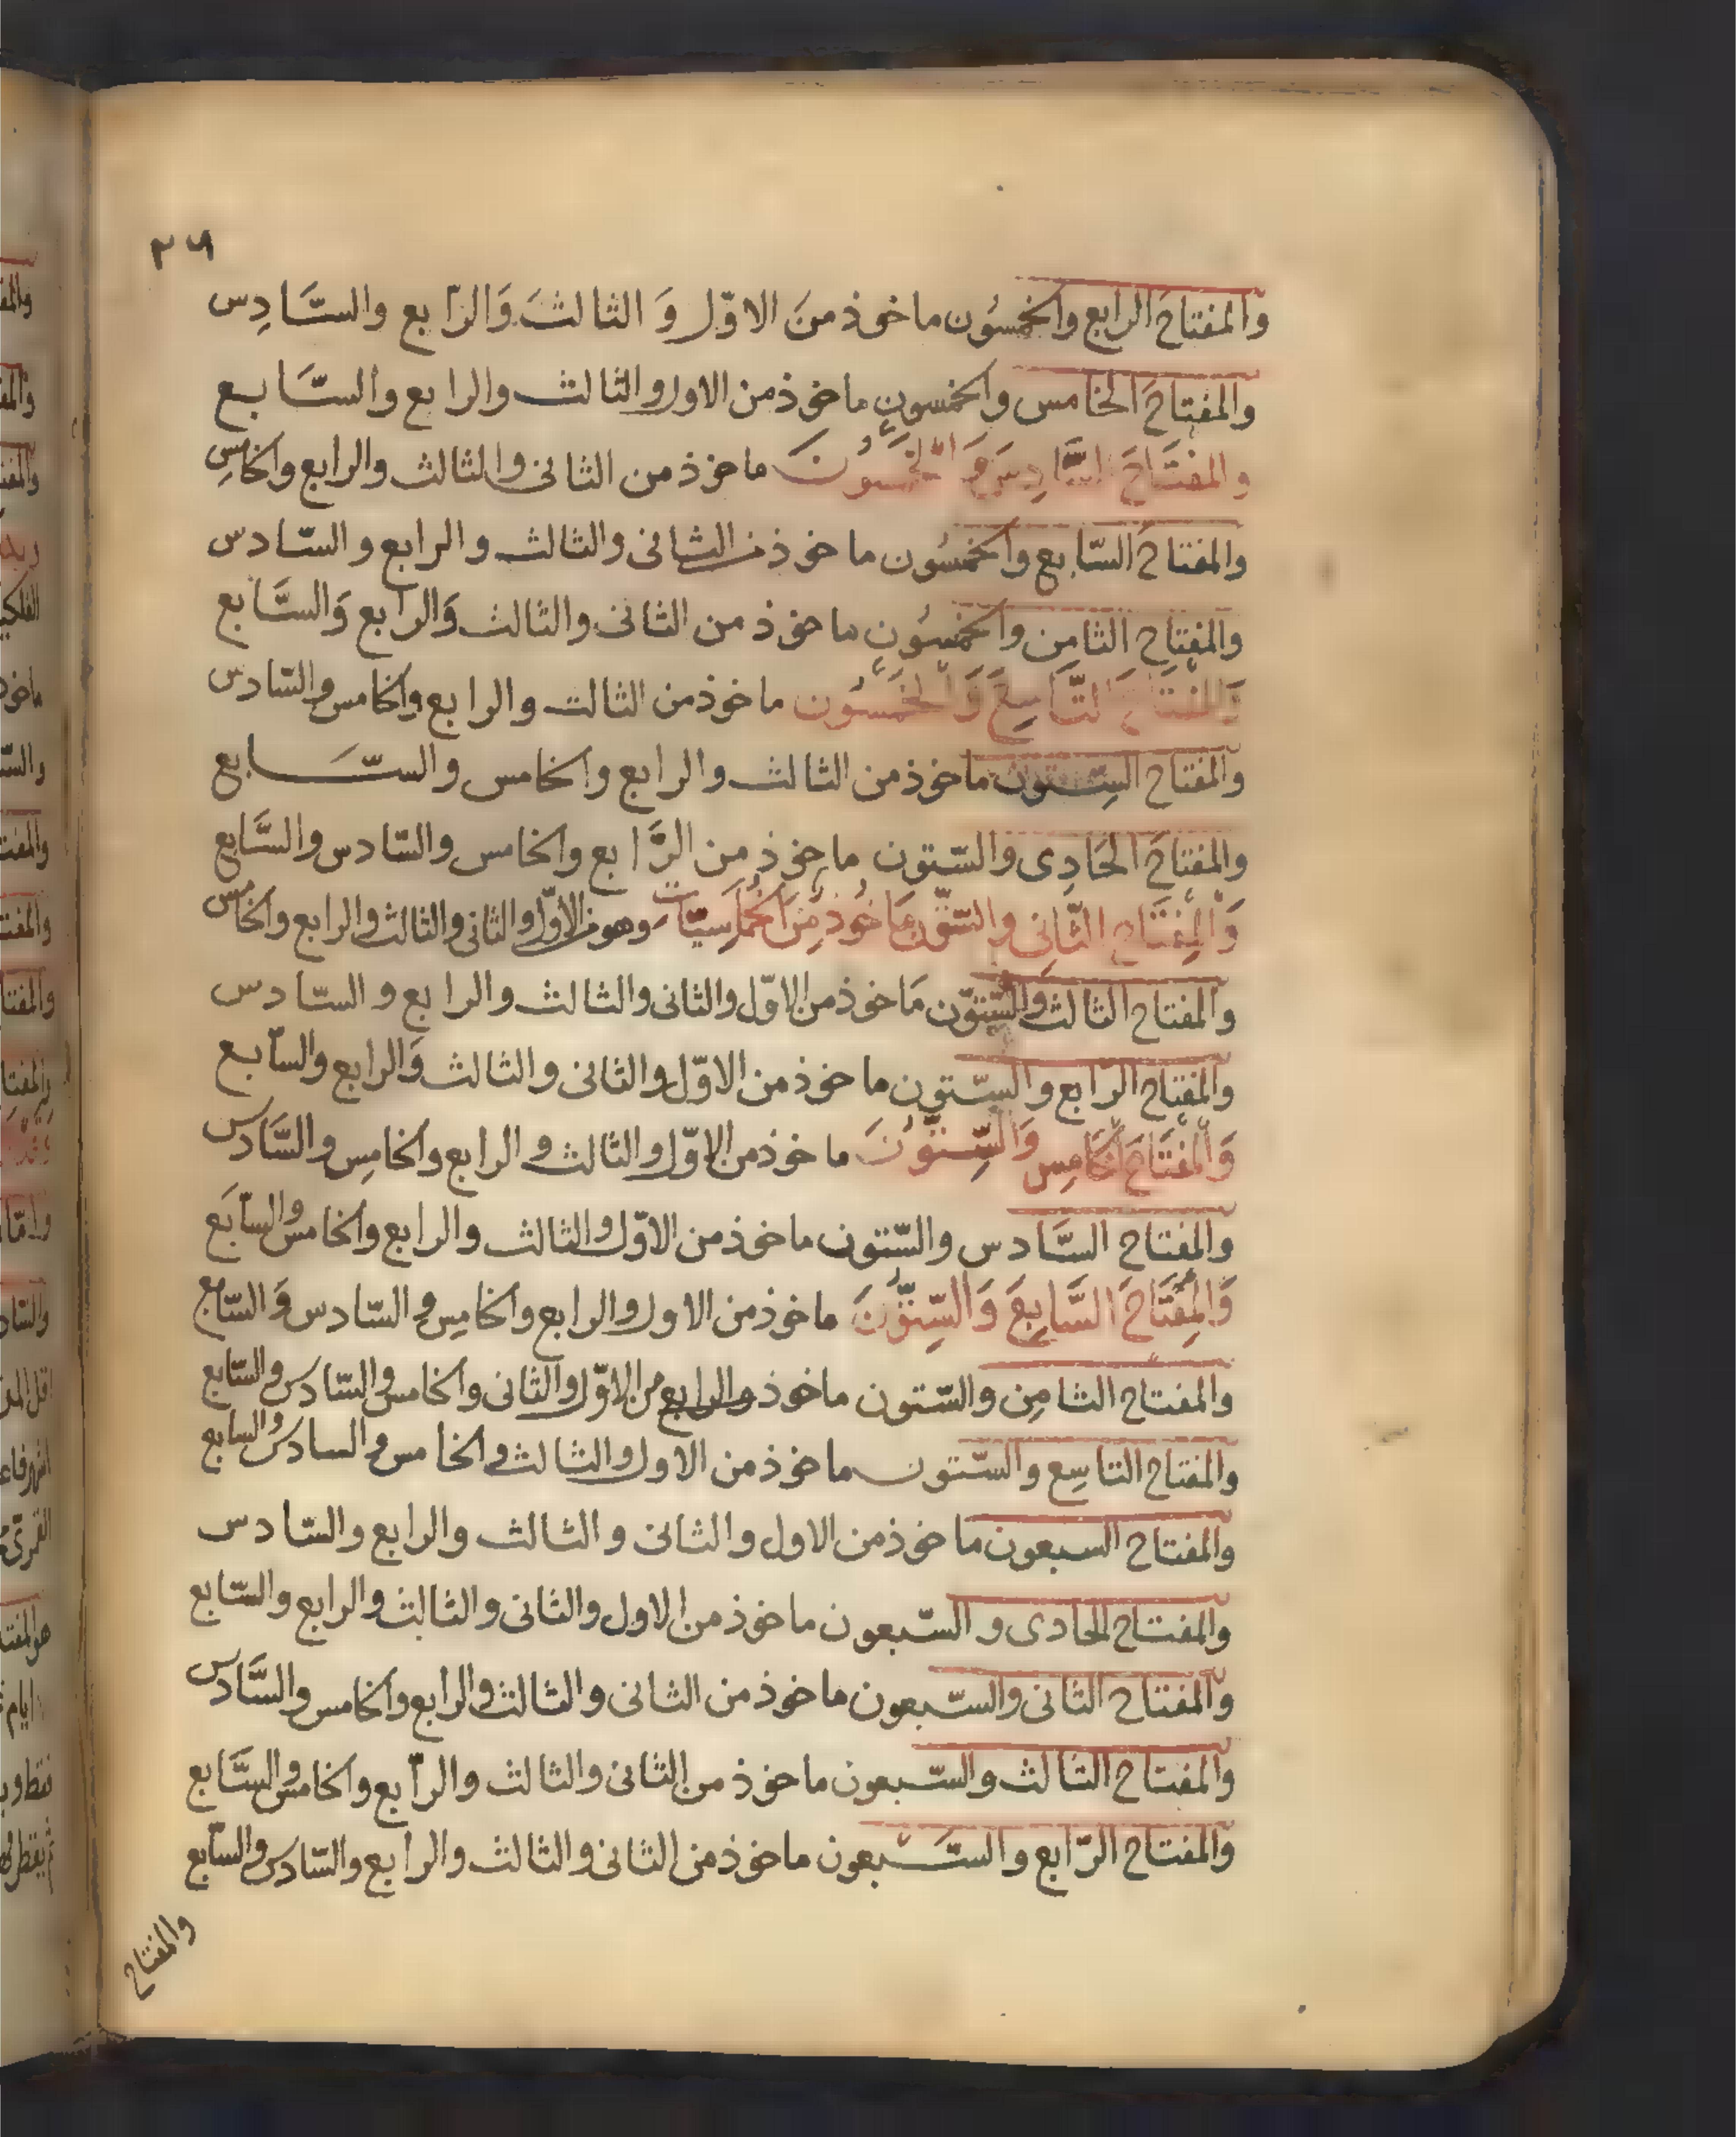 ٢٦
والمفتاح الرابع والخمسون ماخوذ من الاوّل والثالث والرابع والسّادس
والمفتاح الخامس والخمسون ماخوذ من الاول والثالث والرابع والسّابع
والمفتاح السّادس والخمسون ماخوذ من الثانى والثالث والرابع والخامس
والمفتاح السّابع والخمسون ماخوذ من الثانى والثالث والرابع والسّادس
والمفتاح الثامن والخمسون ماخوذ من الثانى والثالث والرابع والسّابع
والمفتاح التّاسع والخمسون ماخوذ من الثالث والرابع والخامس والسّادس
والمفتاح السّتون ماخوذ من الثالث والرابع والخامس والسّابع
والمفتاح الحادى والسّتون ماخوذ من الرّابع والخامس والسّادس والسّابع
والمفتاح الثّانى والسّتّون ماخوذ من الخماسيّات وهو من الاوّل والثانى والثالث والرابع والخامس
والمفتاح الثالث والسّتّون ماخوذ من الاوّل والثانى والثالث والرابع والسّادس
والمفتاح الرّابع والسّتون ماخوذ من الاوّل والثانى والثالث والرابع والسّابع
والمفتاح الخامس والسّتّون ماخوذ من الاوّل والثالث والرابع والخامس والسّادس
والمفتاح السّادس والسّتون ماخوذ من الاوّل والثالث والرابع والخامس والسّابع
والمفتاح السّابع والسّتّون ماخوذ من الاول والرابع والخامس والسّادس والسّابع
والمفتاح الثامن والسّتون ماخوذ والرابع من الاوّل والثانى والخامس والسّادس والسّابع
والمفتاح التاسع والسّتون ماخوذ من الاول والثالث والخامس والسادس والسابع
والمفتاح السبعون ماخوذ من الاول والثانى والثالث والرابع والسّادس
والمفتاح الحادى والسّبعون ماخوذ من الاول والثانى والثالث والرابع والسّابع
والمفتاح الثانى والسّبعون ماخوذ من الثانى والثالث والرابع والخامس والسّادس
والمفتاح الثالث والسّبعون ماخوذ من الثانى والثالث والرّابع والخامس والسّابع
والمفتاح الرّابع والسّبعون ماخوذ من الثانى والثالث والرابع والسّادس والسّابع
والمفتاح